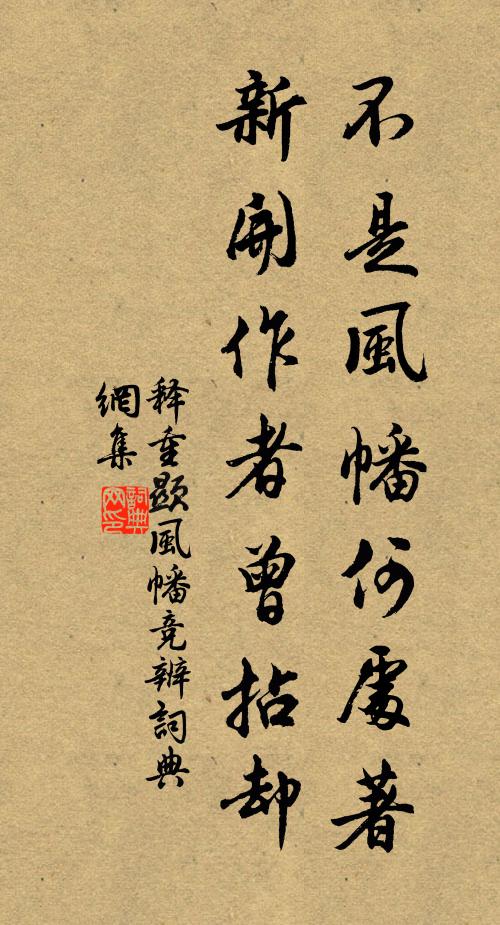 不是風幡何處著
新開作者曾拈却
释重顯風幡竞辨詞典
網集
詞典
网印